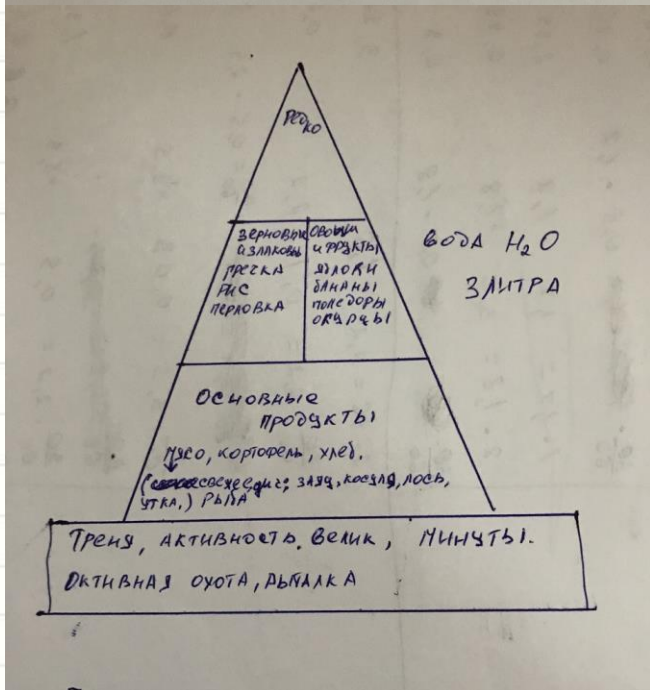 РЕДКО
ЗЕРНОВЫЕ
ИЗЛАКОВЫ
ГРЕЧКА
РИС
ПЕРЛОВКА
ОВОЩИ
И ФРУКТЫ
ЯБЛОКИ
БАНАНЫ
ПОМЕДОРЫ
ОКУРЦЫ
ВОДА H₂O
3 ЛИТРА
ОСНОВНЫЕ
ПРОДУКТЫ
МЯСО, КОРТОФЕЛЬ, ХЛЕБ.
ЗАЯЦ, КОСУЛЯ, ЛОСЬ,
УТКА,) РЫБА
ТРЕНЯ, АКТИВНОСТЬ. ВЕЛИК, МИНУТЫ.
ОКТИВНАЯ ОХОТА, РЫБАЛКА